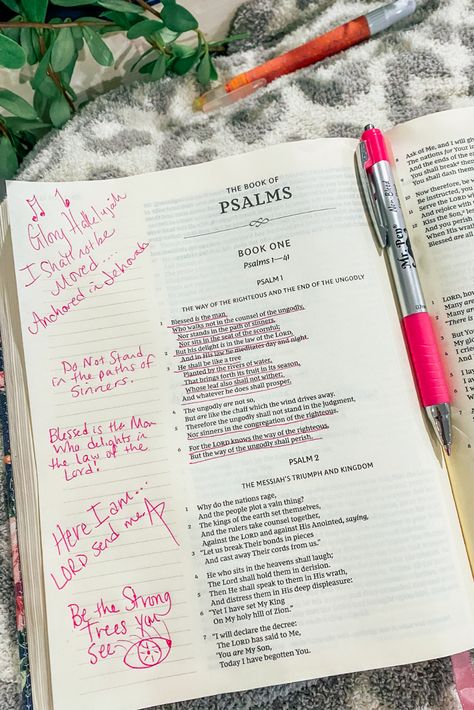 Glory Hallelujah
I Shall not be
Moved....
Anchored in Jehovah
Do Not Stand
in the paths of
Sinners.
Blessed is the Man
Who delights in
the Law of the
Lord!
Here I am...
LORD send me
Be the Strong
Trees You
See
THE BOOK OF
PSALMS
BOOK ONE
Psalms 1—41
PSALM 1
THE WAY OF THE RIGHTEOUS AND THE END OF THE UNGODLY
1 Blessed is the man
Who walks not in the counsel of the ungodly,
Nor stands in the path of sinners,
Nor sits in the seat of the scornful;
2 But his delight is in the law of the LORD,
And in His law he meditates day and night.
3 He shall be like a tree
Planted by the rivers of water,
That brings forth its fruit in its season,
Whose leaf also shall not wither;
And whatever he does shall prosper.
4 The ungodly are not so,
But are like the chaff which the wind drives away.
5 Therefore the ungodly shall not stand in the judgment,
Nor sinners in the congregation of the righteous.
6 For the LORD knows the way of the righteous,
But the way of the ungodly shall perish.
PSALM 2
THE MESSIAH'S TRIUMPH AND KINGDOM
1 Why do the nations rage,
And the people plot a vain thing?
2 The kings of the earth set themselves,
And the rulers take counsel together,
Against the LORD and against His Anointed, saying,
3 "Let us break Their bonds in pieces
And cast away Their cords from us."
4 He who sits in the heavens shall laugh;
The Lord shall hold them in derision.
5 Then He shall speak to them in His wrath,
And distress them in His deep displeasure:
6 "Yet I have set My King
On My holy hill of Zion."
7 "I will declare the decree:
The LORD has said to Me,
'You are My Son,
Today I have begotten You.
Mr. Pen
8 Ask of Me, and I will give
The nations for Your in
9 You shall break
You shall dash them
10 Now therefore, be wi
Be instructed, you
11 Serve the LORD with
And rejoice with
12 Kiss the Son, lest
And you perish
When His wrath
Blessed are all
LORD, how
Many are
Many are
"There is
But You
My
I cried
And